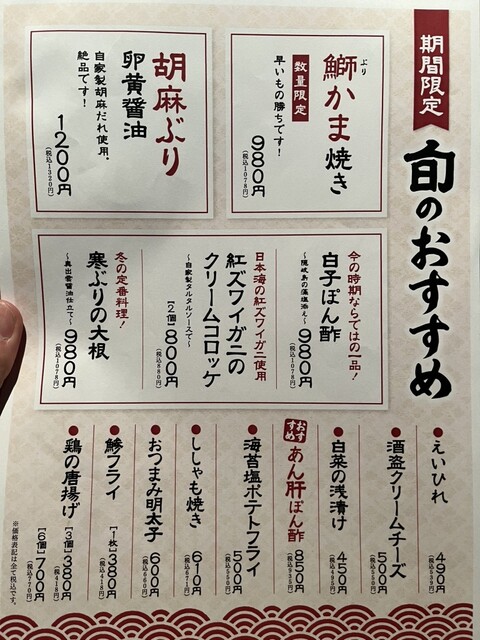 期間限定
旬のおすすめ
ぶり
鰤かま焼き
数量限定
早いもの勝ちです！
980円
(税込1078円)
胡麻ぶり
卵黄醤油
自家製胡麻だれ使用。
絶品です！
1200円
(税込1320円)
今の時期ならではの一品！
白子ぽん酢
〜隠岐島の藻塩添え〜
980円
(税込1078円)
日本海の紅ズワイガニ使用
紅ズワイガニの
クリームコロッケ
〜自家製タルタルソースで〜
【2個】800円
(税込880円)
冬の定番料理！
寒ぶりの大根
〜奥出雲醤油仕立て〜
980円
(税込1078円)
●えいひれ
490円
(税込539円)
●酒盗クリームチーズ
500円
(税込550円)
●白菜の浅漬け
450円
(税込495円)
おすすめ
あん肝ぽん酢
850円
(税込935円)
●海苔塩ポテトフライ
500円
(税込550円)
●ししゃも焼き
610円
(税込671円)
●おつまみ明太子
600円
(税込660円)
●鯵フライ
【1枚】380円
(税込418円)
●鶏の唐揚げ
【3個】380円
(税込418円)
【6個】700円
(税込770円)
※価格表記は全て税込です。